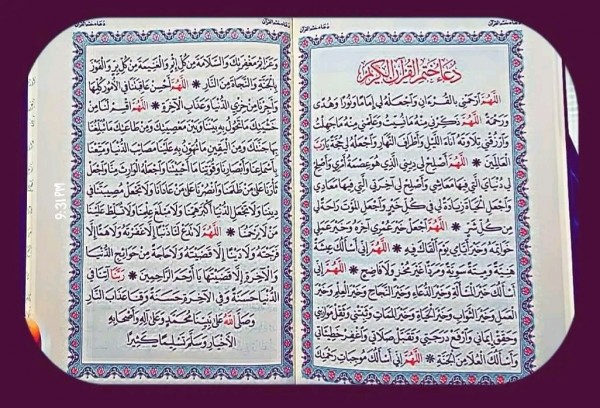 دعاء ختم القرآن
دُعَاءُ خَتْمِ الْقُرْآنِ الْكَرِيمِ
اللَّهُمَّ ارْحَمْنِي بِالْقُرْءَانِ وَاجْعَلْهُ لِي إِمَامًا وَنُورًا وَهُدًى
وَرَحْمَةً اللَّهُمَّ ذَكِّرْنِي مِنْهُ مَا نَسِيتُ وَعَلِّمْنِي مِنْهُ مَا جَهِلْتُ
وَارْزُقْنِي تِلَاوَتَهُ آنَاءَ اللَّيْلِ وَأَطْرَافَ النَّهَارِ وَاجْعَلْهُ لِي حُجَّةً يَا رَبَّ
الْعَالَمِينَ * اللَّهُمَّ أَصْلِحْ لِي دِينِي الَّذِي هُوَ عِصْمَةُ أَمْرِي وَأَصْلِحْ
لِي دُنْيَايَ الَّتِي فِيهَا مَعَاشِي وَأَصْلِحْ لِي آخِرَتِي الَّتِي فِيهَا مَعَادِي
وَاجْعَلِ الْحَيَاةَ زِيَادَةً لِي فِي كُلِّ خَيْرٍ وَاجْعَلِ الْمَوْتَ رَاحَةً لِي
مِنْ كُلِّ شَرٍّ * اللَّهُمَّ اجْعَلْ خَيْرَ عُمْرِي آخِرَهُ وَخَيْرَ عَمَلِي
خَوَاتِمَهُ وَخَيْرَ أَيَّامِي يَوْمَ أَلْقَاكَ فِيهِ * اللَّهُمَّ إِنِّي أَسْأَلُكَ عِيشَةً
هَنِيَّةً وَمِيتَةً سَوِيَّةً وَمَرَدًّا غَيْرَ مُخْزٍ وَلَا فَاضِحٍ * اللَّهُمَّ إِنِّي
أَسْأَلُكَ خَيْرَ الْمَسْأَلَةِ وَخَيْرَ الدُّعَاءِ وَخَيْرَ النَّجَاحِ وَخَيْرَ الْعِلْمِ وَخَيْرَ
الْعَمَلِ وَخَيْرَ الثَّوَابِ وَخَيْرَ الْحَيَاةِ وَخَيْرَ الْمَمَاتِ وَثَبِّتْنِي وَثَقِّلْ مَوَازِينِي
وَحَقِّقْ إِيمَانِي وَارْفَعْ دَرَجَتِي وَتَقَبَّلْ صَلَاتِي وَاغْفِرْ خَطِيئَاتِي
وَأَسْأَلُكَ الْعُلَا مِنَ الْجَنَّةِ * اللَّهُمَّ إِنِّي أَسْأَلُكَ مُوجِبَاتِ رَحْمَتِكَ
دعاء ختم القرآن
وَعَزَائِمَ مَغْفِرَتِكَ وَالسَّلَامَةَ مِنْ كُلِّ إِثْمٍ وَالْغَنِيمَةَ مِنْ كُلِّ بِرٍّ وَالْفَوْزَ
بِالْجَنَّةِ وَالنَّجَاةَ مِنَ النَّارِ * اللَّهُمَّ أَحْسِنْ عَاقِبَتَنَا فِي الْأُمُورِ كُلِّهَا
وَأَجِرْنَا مِنْ خِزْيِ الدُّنْيَا وَعَذَابِ الْآخِرَةِ * اللَّهُمَّ اقْسِمْ لَنَا مِنْ
خَشْيَتِكَ مَا تَحُولُ بِهِ بَيْنَنَا وَبَيْنَ مَعْصِيَتِكَ وَمِنْ طَاعَتِكَ مَا تُبَلِّغُنَا
بِهَا جَنَّتَكَ وَمِنَ الْيَقِينِ مَا تُهَوِّنُ بِهِ عَلَيْنَا مَصَائِبَ الدُّنْيَا وَمَتِّعْنَا
بِأَسْمَاعِنَا وَأَبْصَارِنَا وَقُوَّتِنَا مَا أَحْيَيْتَنَا وَاجْعَلْهُ الْوَارِثَ مِنَّا وَاجْعَلْ
ثَأْرَنَا عَلَى مَنْ ظَلَمَنَا وَانْصُرْنَا عَلَى مَنْ عَادَانَا وَلَا تَجْعَلْ مُصِيبَتَنَا فِي
دِينِنَا وَلَا تَجْعَلِ الدُّنْيَا أَكْبَرَ هَمِّنَا وَلَا مَبْلَغَ عِلْمِنَا وَلَا تُسَلِّطْ عَلَيْنَا
مَنْ لَا يَرْحَمُنَا * اللَّهُمَّ لَا تَدَعْ لَنَا ذَنْبًا إِلَّا غَفَرْتَهُ وَلَا هَمًّا إِلَّا
فَرَّجْتَهُ وَلَا دَيْنًا إِلَّا قَضَيْتَهُ وَلَا حَاجَةً مِنْ حَوَائِجِ الدُّنْيَا
وَالْآخِرَةِ إِلَّا قَضَيْتَهَا يَا أَرْحَمَ الرَّاحِمِينَ * رَبَّنَا آتِنَا فِي
الدُّنْيَا حَسَنَةً وَفِي الْآخِرَةِ حَسَنَةً وَقِنَا عَذَابَ النَّارِ
وَصَلَّى اللَّهُ عَلَى نَبِيِّنَا مُحَمَّدٍ وَعَلَى آلِهِ وَأَصْحَابِهِ
الْأَخْيَارِ وَسَلَّمَ تَسْلِيمًا كَثِيرًا
9:31 PM